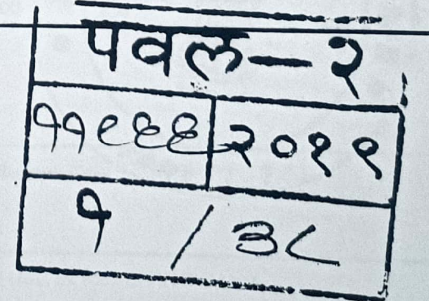 पवल-२
११९६६ २०१९
१ / ३८